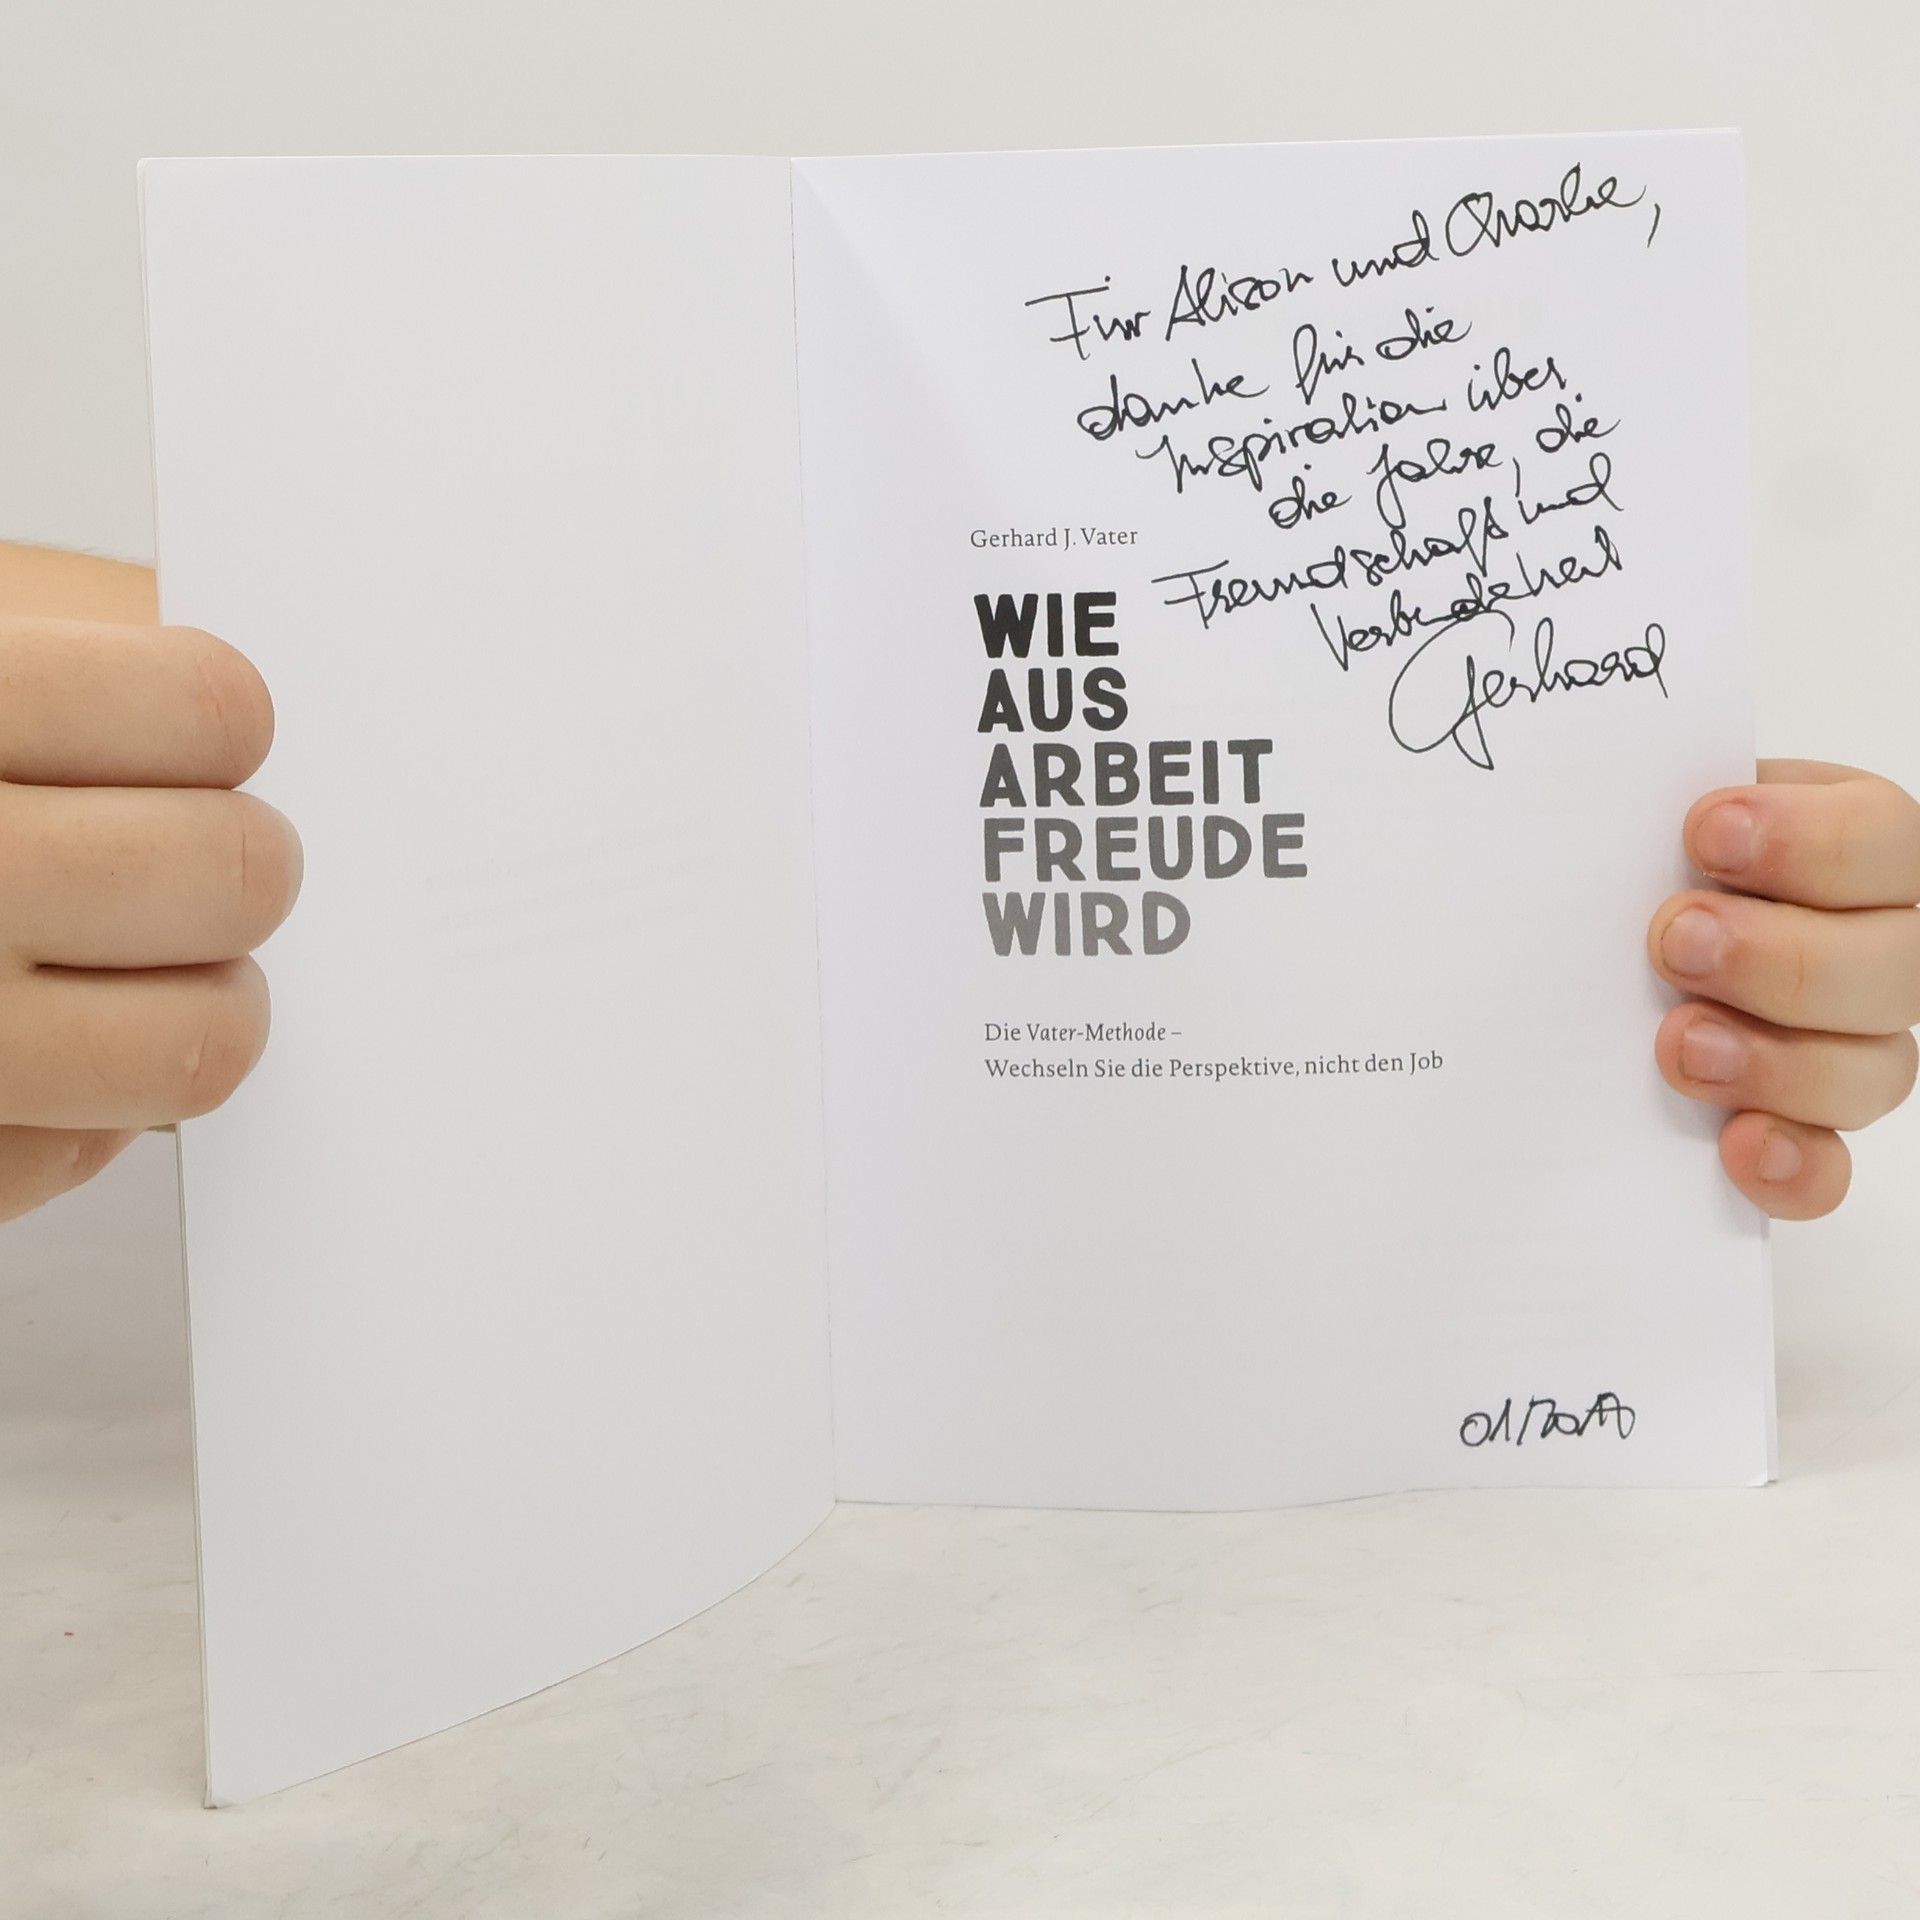 Für Alison und Charlie,
danke für die
Inspiration über
die Jahre, die
Freundschaft und
Verbundenheit
Gerhard
Gerhard J. Vater
WIE
AUS
ARBEIT
FREUDE
WIRD
Die Vater-Methode –
Wechseln Sie die Perspektive, nicht den Job